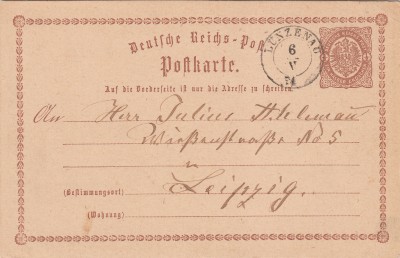 Deutsche Reichs-Post
Postkarte.
LUNZENAU
6
V
74
Auf die Vorderseite ist nur die Adresse zu schreiben.
An Herr Julius
No 5
Leipzig.
(Bestimmungsort)
(Wohnung)